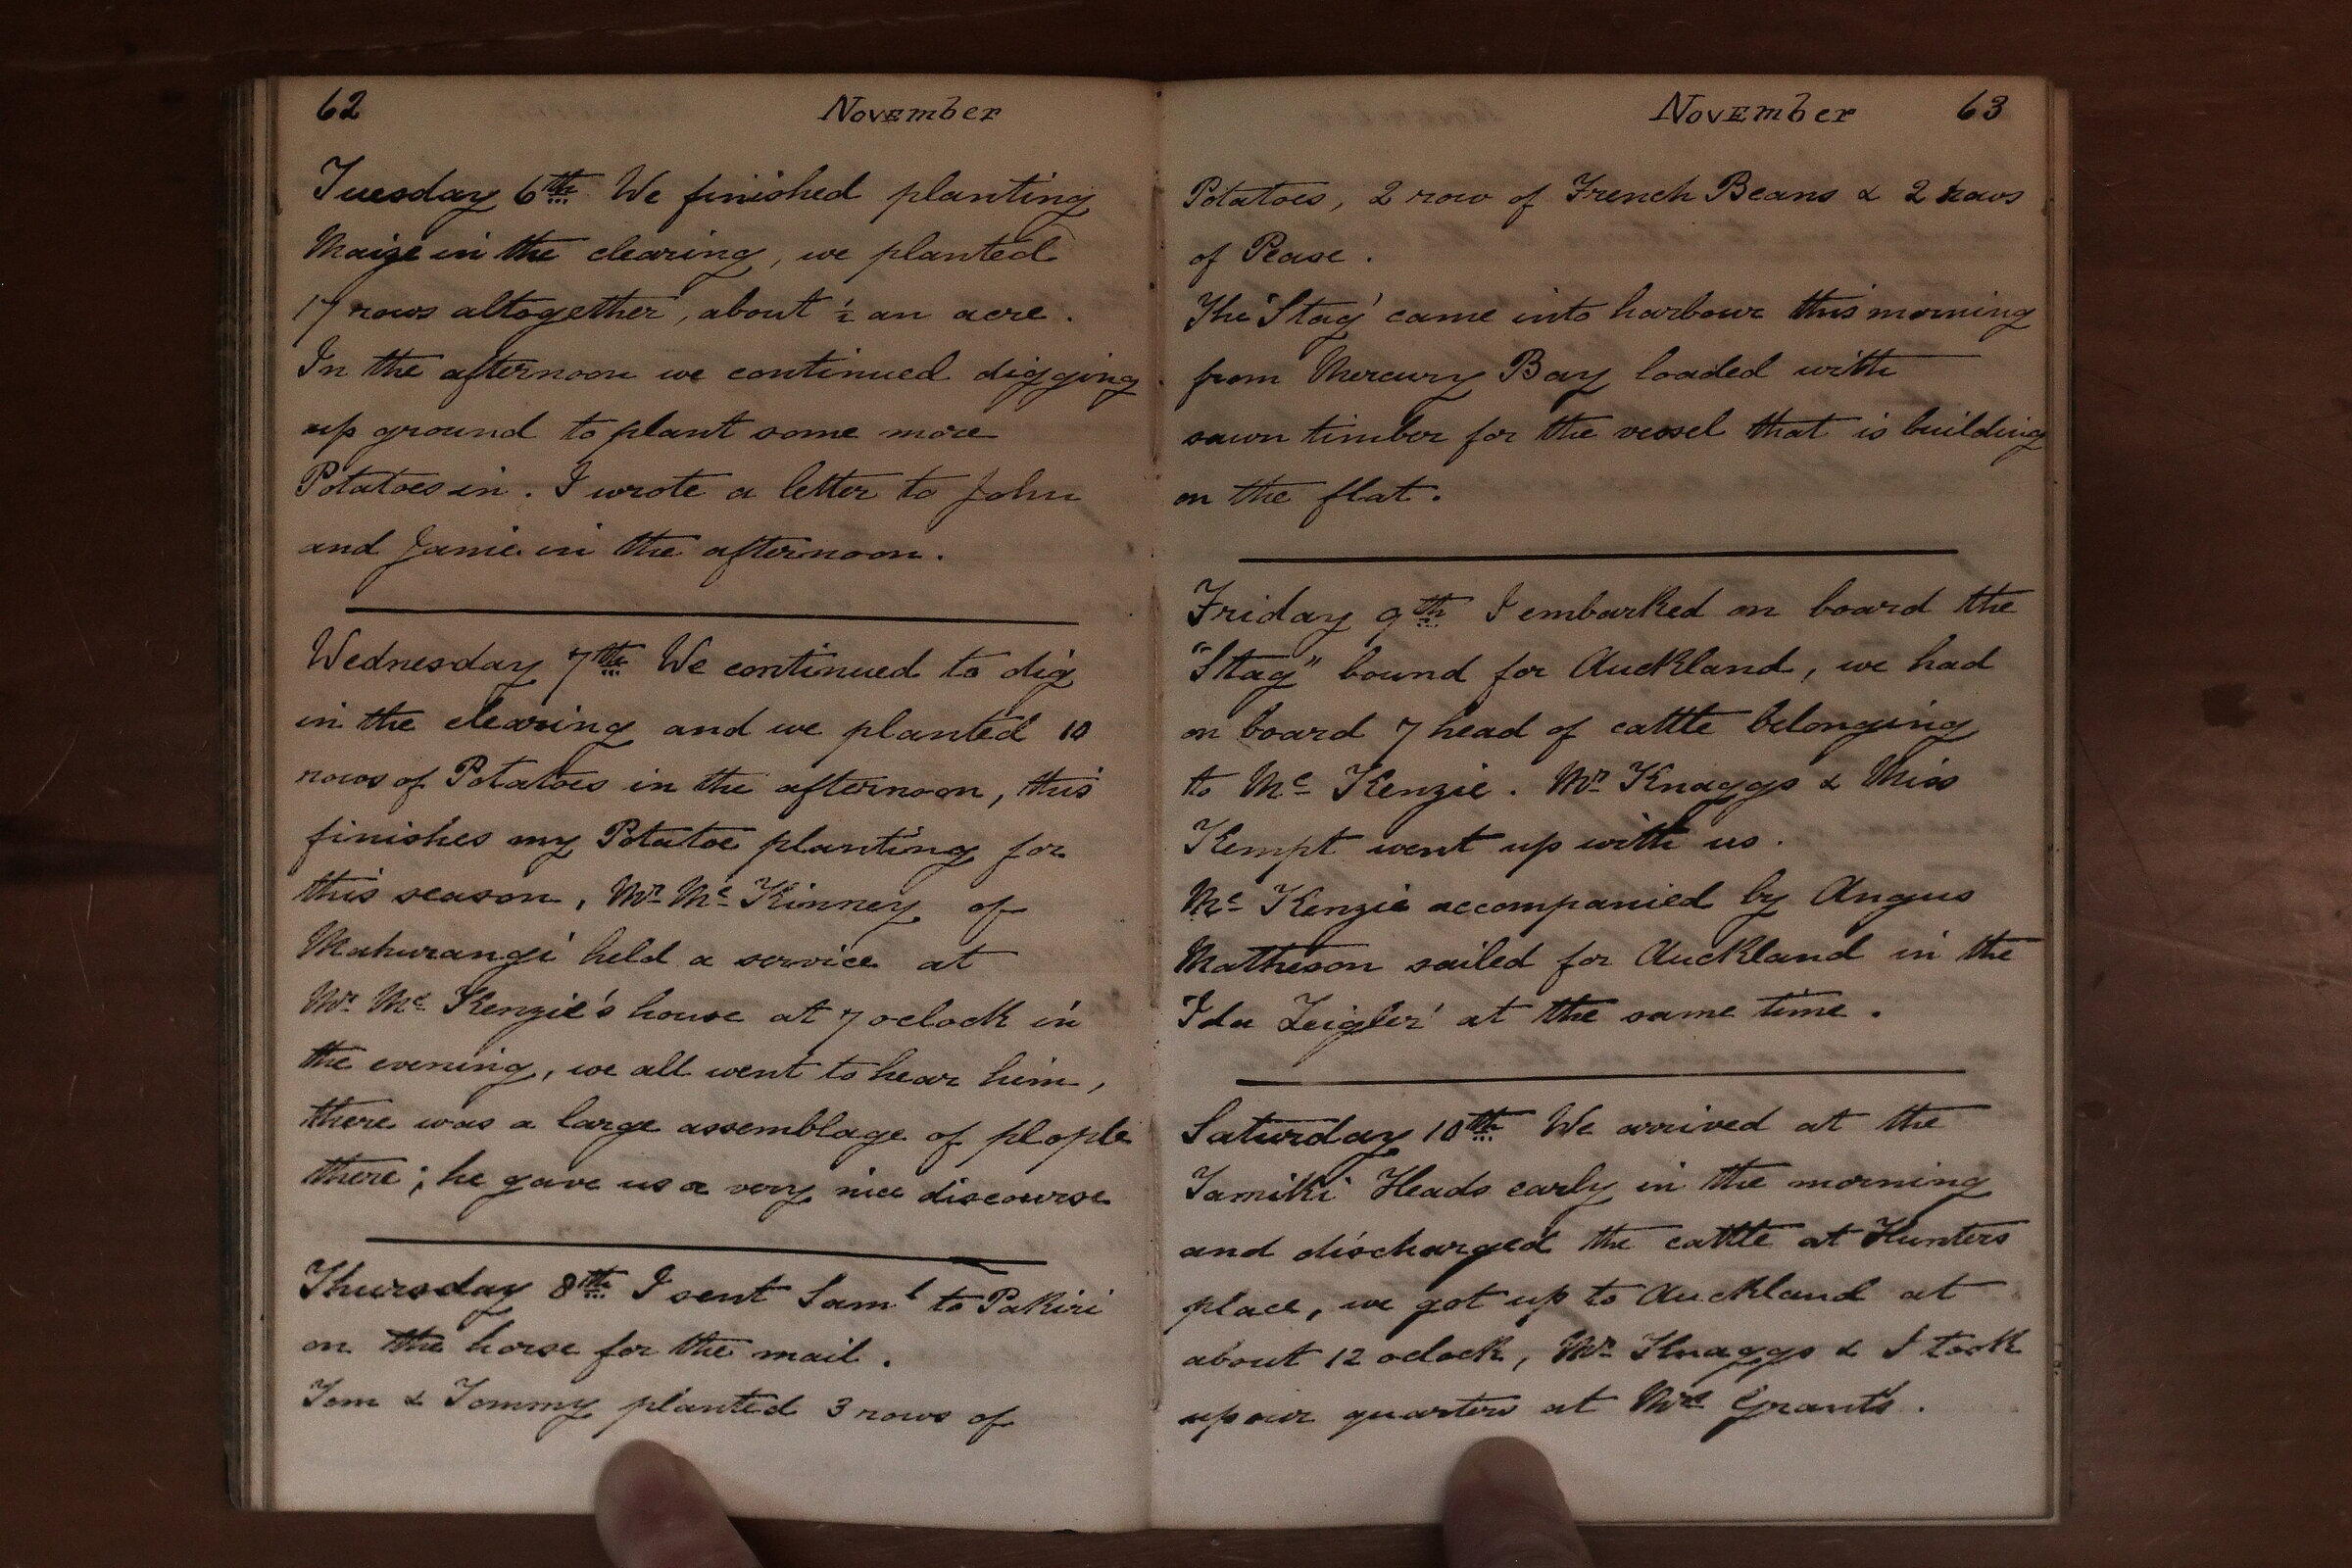 62 November
Tuesday 6th We finished planting
Maize in the clearing, we planted
17 rows altogether, about ½ an acre.
In the afternoon we continued digging
up ground to plant some more
Potatoes in. I wrote a letter to John
and Janie in the afternoon.
Wednesday 7th We continued to dig
in the clearing and we planted 10
rows of Potatoes in the afternoon, this
finishes my Potatoe planting for
this season. Mr Mc Kinney of
Mahurangi held a service at
Mr Mc Kenzie's house at 7 oclock in
the evening, we all went to hear him,
there was a large assemblage of plople
there; he gave us a very nice discourse
Thursday 8th I sent Saml to Pakiri
on the horse for the mail.
Tom & Tommy planted 3 rows of
November 63
Potatoes, 2 row of French Beans & 2 rows
of Pease.
The 'Stag' came into harbour this morning
from Mercury Bay loaded with
sawn timber for the vessel that is building
on the flat.
Friday 9th I embarked on board the
"Stag" bound for Auckland, we had
on board 7 head of cattle belonging
to Mc Kenzie. Mr Knaggs & Miss
Kempt went up with us.
Mc Kenzie accompanied by Angus
Matheson sailed for Auckland in the
'Ida Zeigler' at the same time.
Saturday 10th We arrived at the
Tamiki Heads early in the morning
and discharged the cattle at Hunters
place, we got up to Auckland at
about 12 oclock, Mr Knaggs & I took
up our quarters at Mrs Grants.